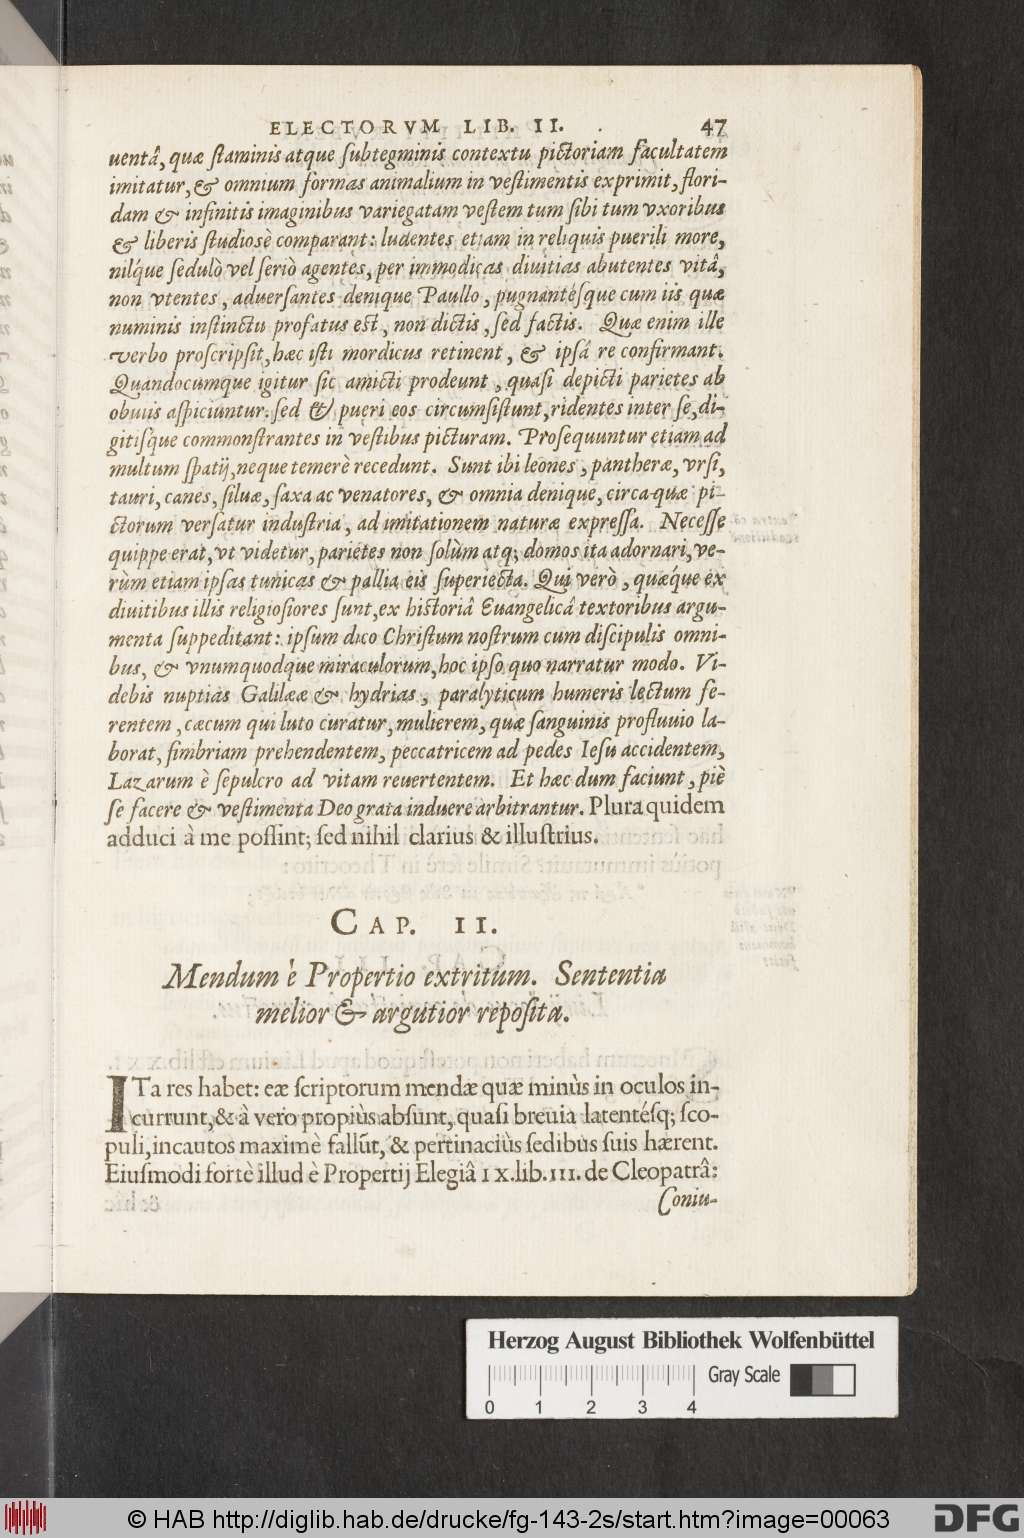 ELECTORVM LIB. II. 47
uentâ, quæ ſtaminis atque ſubtegminis contextu pictoriam facultatem
imitatur, & omnium formas animalium in veſtimentis exprimit, flori-
dam & infinitis imaginibus variegatam veſtem tum ſibi tum vxoribus
& liberis ſtudiosè comparant: ludentes etiam in reliquis puerili more,
nilq́ue ſedulò vel ſeriò agentes, per immodicas diuitias abutentes vitâ,
non vtentes, aduerſantes denique Paullo, pugnantéſque cum iis quæ
numinis inſtinctu profatus eſt, non dictis, ſed factis. Quæ enim ille
verbo proſcripſit, hæc iſti mordicus retinent, & ipſâ re confirmant.
Quandocumque igitur ſic amicti prodeunt, quaſi depicti parietes ab
obuiis aſpiciuntur: ſed & pueri eos circumſiſtunt, ridentes inter ſe, di-
gitiſque commonſtrantes in veſtibus picturam. Proſequuntur etiam ad
multum ſpatij, neque temerè recedunt. Sunt ibi leones, pantheræ, vrſi,
tauri, canes, ſiluæ, ſaxa ac venatores, & omnia denique, circa quæ pi-
ctorum verſatur induſtria, ad imitationem naturæ expreſſa. Neceſſe
quippe erat, vt videtur, parietes non ſolùm atq; domos ita adornari, ve-
rùm etiam ipſas tunicas & pallia eis ſuperiecta. Qui verò, quæq́ue ex
diuitibus illis religioſiores ſunt, ex hiſtoriâ Euangelicâ textoribus argu-
menta ſuppeditant: ipſum dico Chriſtum noſtrum cum diſcipulis omni-
bus, & vnumquodque miraculorum, hoc ipſo quo narratur modo. Vi-
debis nuptias Galilææ & hydrias, paralyticum humeris lectum fe-
rentem, cæcum qui luto curatur, mulierem, quæ ſanguinis profluuio la-
borat, fimbriam prehendentem, peccatricem ad pedes Ieſu accidentem,
Lazarum è ſepulcro ad vitam reuertentem. Et hæc dum faciunt, piè
ſe facere & veſtimenta Deo grata induere arbitrantur. Plura quidem
adduci à me poſſint; ſed nihil clarius & illuſtrius.
CAP. II.
Mendum è Propertio extritum. Sententia
melior & argutior repoſita.
ITa res habet: eæ ſcriptorum mendæ quæ minùs in oculos in-
currunt, & à vero propiùs abſunt, quaſi breuia latentéſq; ſco-
puli, incautos maximè fallūt, & pertinaciùs ſedibus ſuis hærent.
Eiuſmodi fortè illud è Propertij Elegiâ IX. lib. III. de Cleopatrâ:
Coniu-
Herzog August Bibliothek Wolfenbüttel
Gray Scale
0 1 2 3 4
© HAB http://diglib.hab.de/drucke/fg-143-2s/start.htm?image=00063
DFG